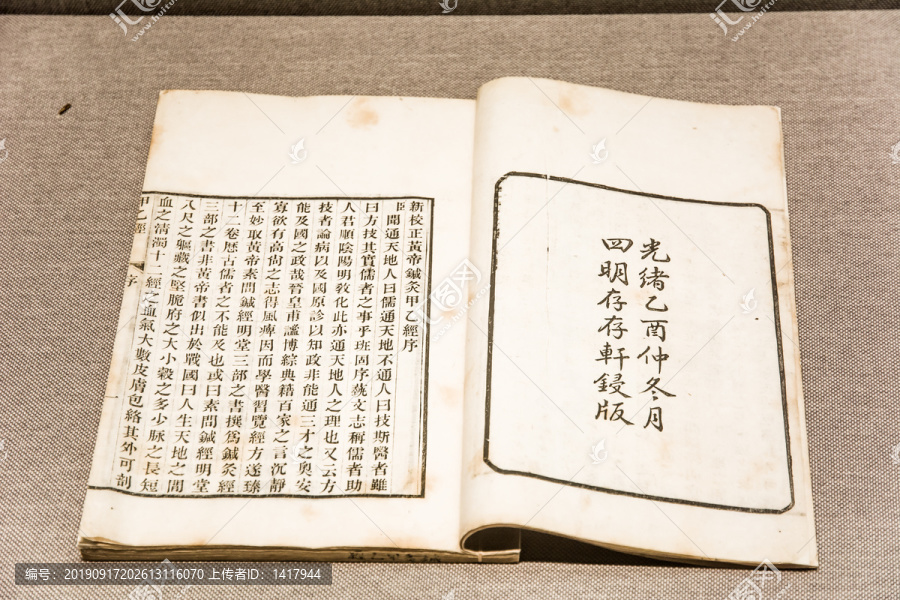 光緒乙酉仲冬月
四明存存軒鋟版
新校正黃帝鍼灸甲乙經序
臣聞通天地人曰儒通天地不通人曰技斯醫者雖
曰方技其實儒者之事乎班固序藝文志稱儒者助
人君順陰陽明教化此亦通天地人之理也又云方
技者論病以及國原診以知政非能通三才之奧安
能及國之政哉晉皇甫謐博綜典籍百家之言沉靜
寡欲有高尚之志得風痺因而學醫習覽經方遂臻
至妙取黃帝素問鍼經明堂三部之書撰爲鍼灸經
十二卷歷古儒者之不能及也或曰素問鍼經明堂
三部之書非黃帝書似出於戰國曰人生天地之間
八尺之軀藏之堅脆府之大小穀之多少脉之長短
血之清濁十二經之血氣大數皮膚包絡其外可剖
甲乙經 序 一
编号:20190917202613116070 上传者ID:1417944